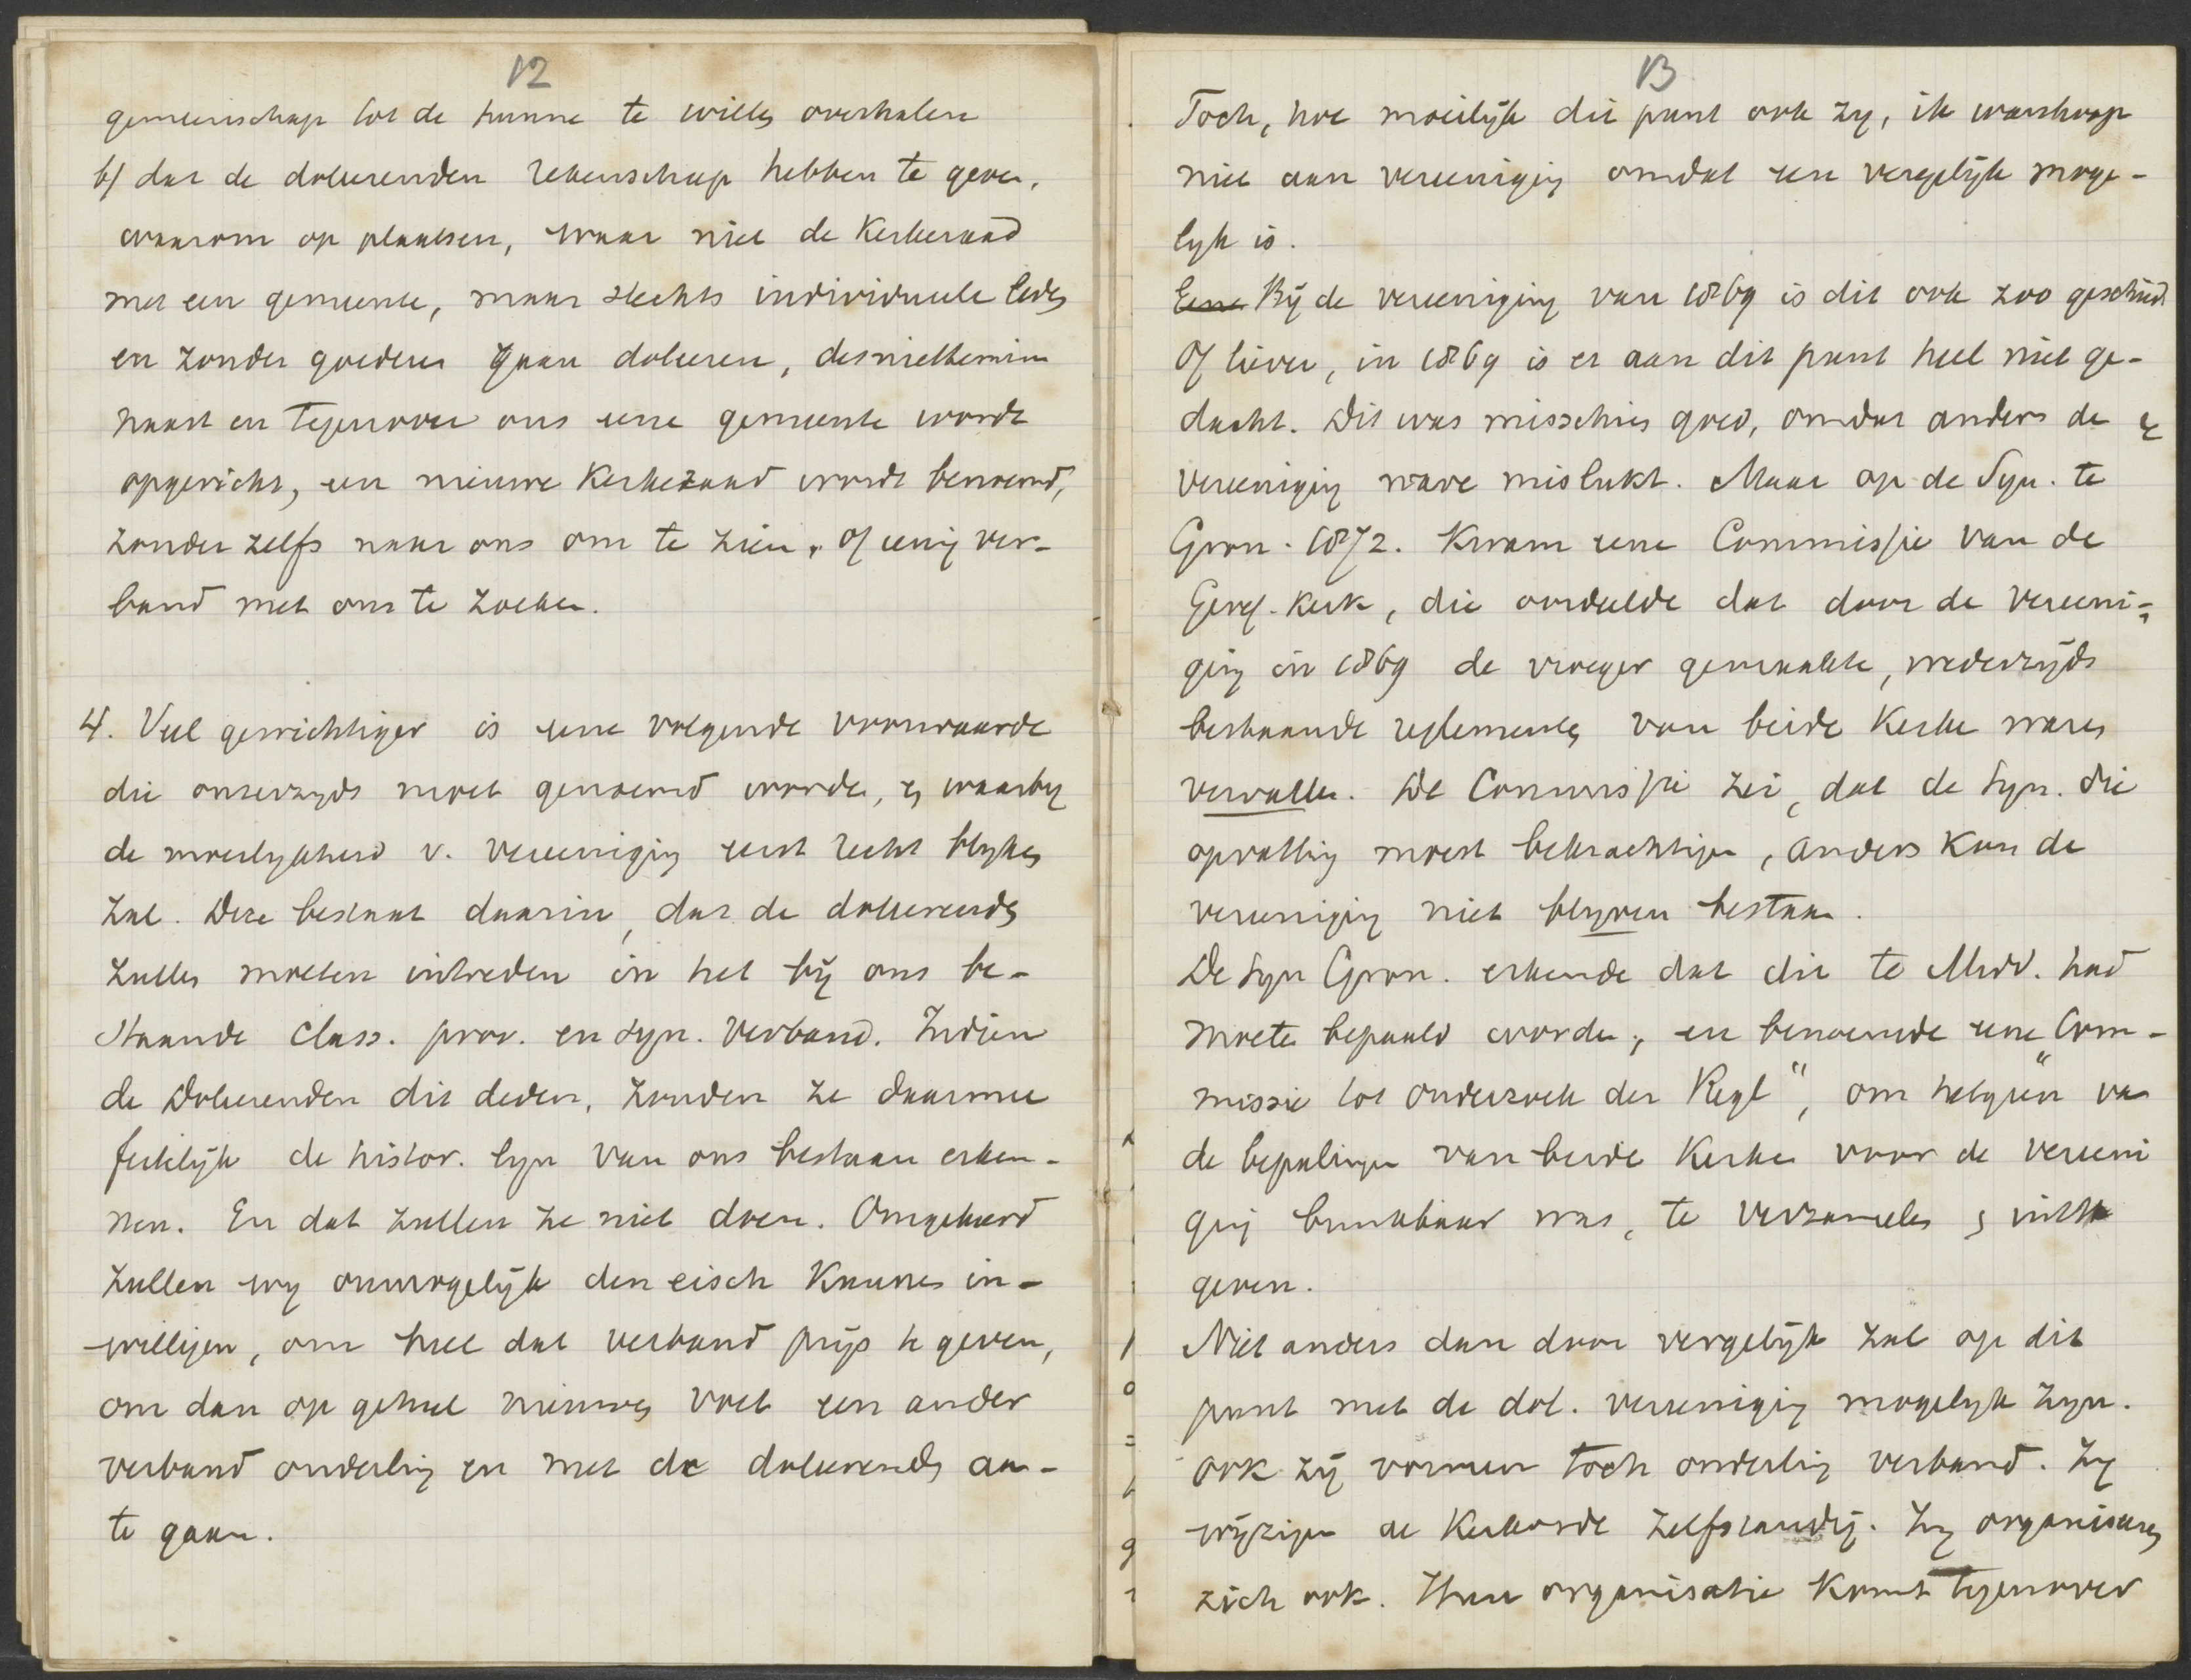 12
gemeenschap tot de hunne te willen overhalen
b/ dat de doleerenden rekenschap hebben te geven,
waarom op plaatsen, waar niet de Kerkeraad
met een gemeente, maar slechts individueele leden
en zonder goederen gaan doleeren, desniettemin
naast en tegenover ons eene gemeente wordt
opgericht, een nieuwe Kerkeraad wordt benoemd,
zonder zelfs naar ons om te zien, of eenig ver-
band met ons te zoeken.
4. Veel gewichtiger is eene volgende voorwaarde
die onzerzyds moet genoemd worden, en waarby
de moeilykheid v. vereeniging eerst recht blyken
zal. Deze bestaat daarin, dat de doleerenden
zullen moeten intreden in het bij ons be-
staande class. prov. en syn. verband. Indien
de Doleerenden dit deden, zouden ze daarmee
feitelijk de histor. lyn van ons bestaan erken-
nen. En dat zullen ze niet doen. Omgekeerd
zullen wy onmogelijk den eisch kunnen in-
willigen, om heel dat verband prijs te geven,
om dan op geheel nieuwen voet een ander
verband onderling en met de doleerenden aan-
te gaan.
13
Toch, hoe moeilijk dit punt ook zy, ik wanhoop
niet aan vereeniging omdat een vergelijk moge-
lyk is.
Eene Bij de vereeniging van 1869 is dit ook zoo geschied.
Of liever, in 1869 is er aan dit punt heel niet ge-
dacht. Dit was misschien goed, omdat anders de
vereeniging ware mislukt. Maar op de Syn. te
Gron. 1872. kwam eene Commissie van de
Geref. Kerk, die oordeelde dat door de vereeni-
ging in 1869 de vroeger gemaakte, wederzijds
bestaande reglementen van beide Kerken waren
vervallen. De Commissie zei, dat de Syn. die
opvatting moest bekrachtigen, anders kon de
vereeniging niet blyven bestaan.
De Syn Gron. erkende dat dit te Midd. had
moeten bepaald worden, en benoemde eene "Com-
missie tot onderzoek der Regl", om hetgeen van
de bepalingen van beide Kerken voor de vereeni
ging bruikbaar was, te verzamelen en uit te
geven.
Niet anders dan door vergelijk zal op dit
punt met de dol. vereeniging mogelyk zyn.
Ook zij vormen toch onderling verband. Zy
wijzigen de Kerkorde zelfstandig. Zy organiseeren
zich ook. Hun organisatie komt tegenover